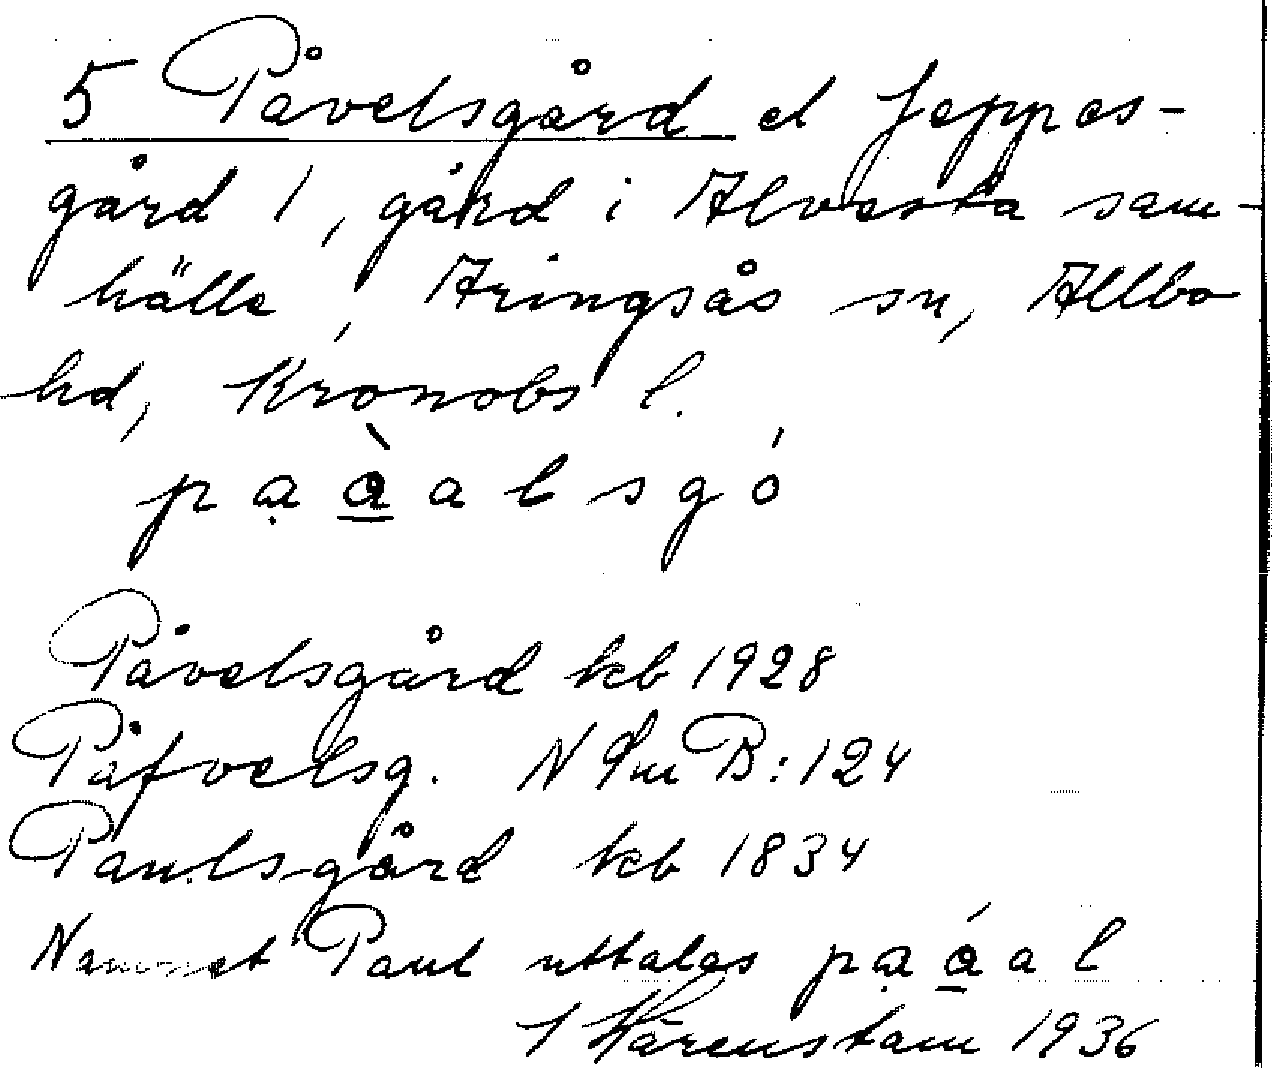 5 Påvelsgård el Jeppes-
gård 1, gård i Alvesta sam-
hälle, Aringsås sn, Allbo
hd, Kronobs l.
pạà̲alsgó
Påvelsgård kb 1928
Påfvelsg. N Sm B:124
Paulsgård kb 1834
Namnet Paul uttalas pạá̲al
I Kärenstam 1936